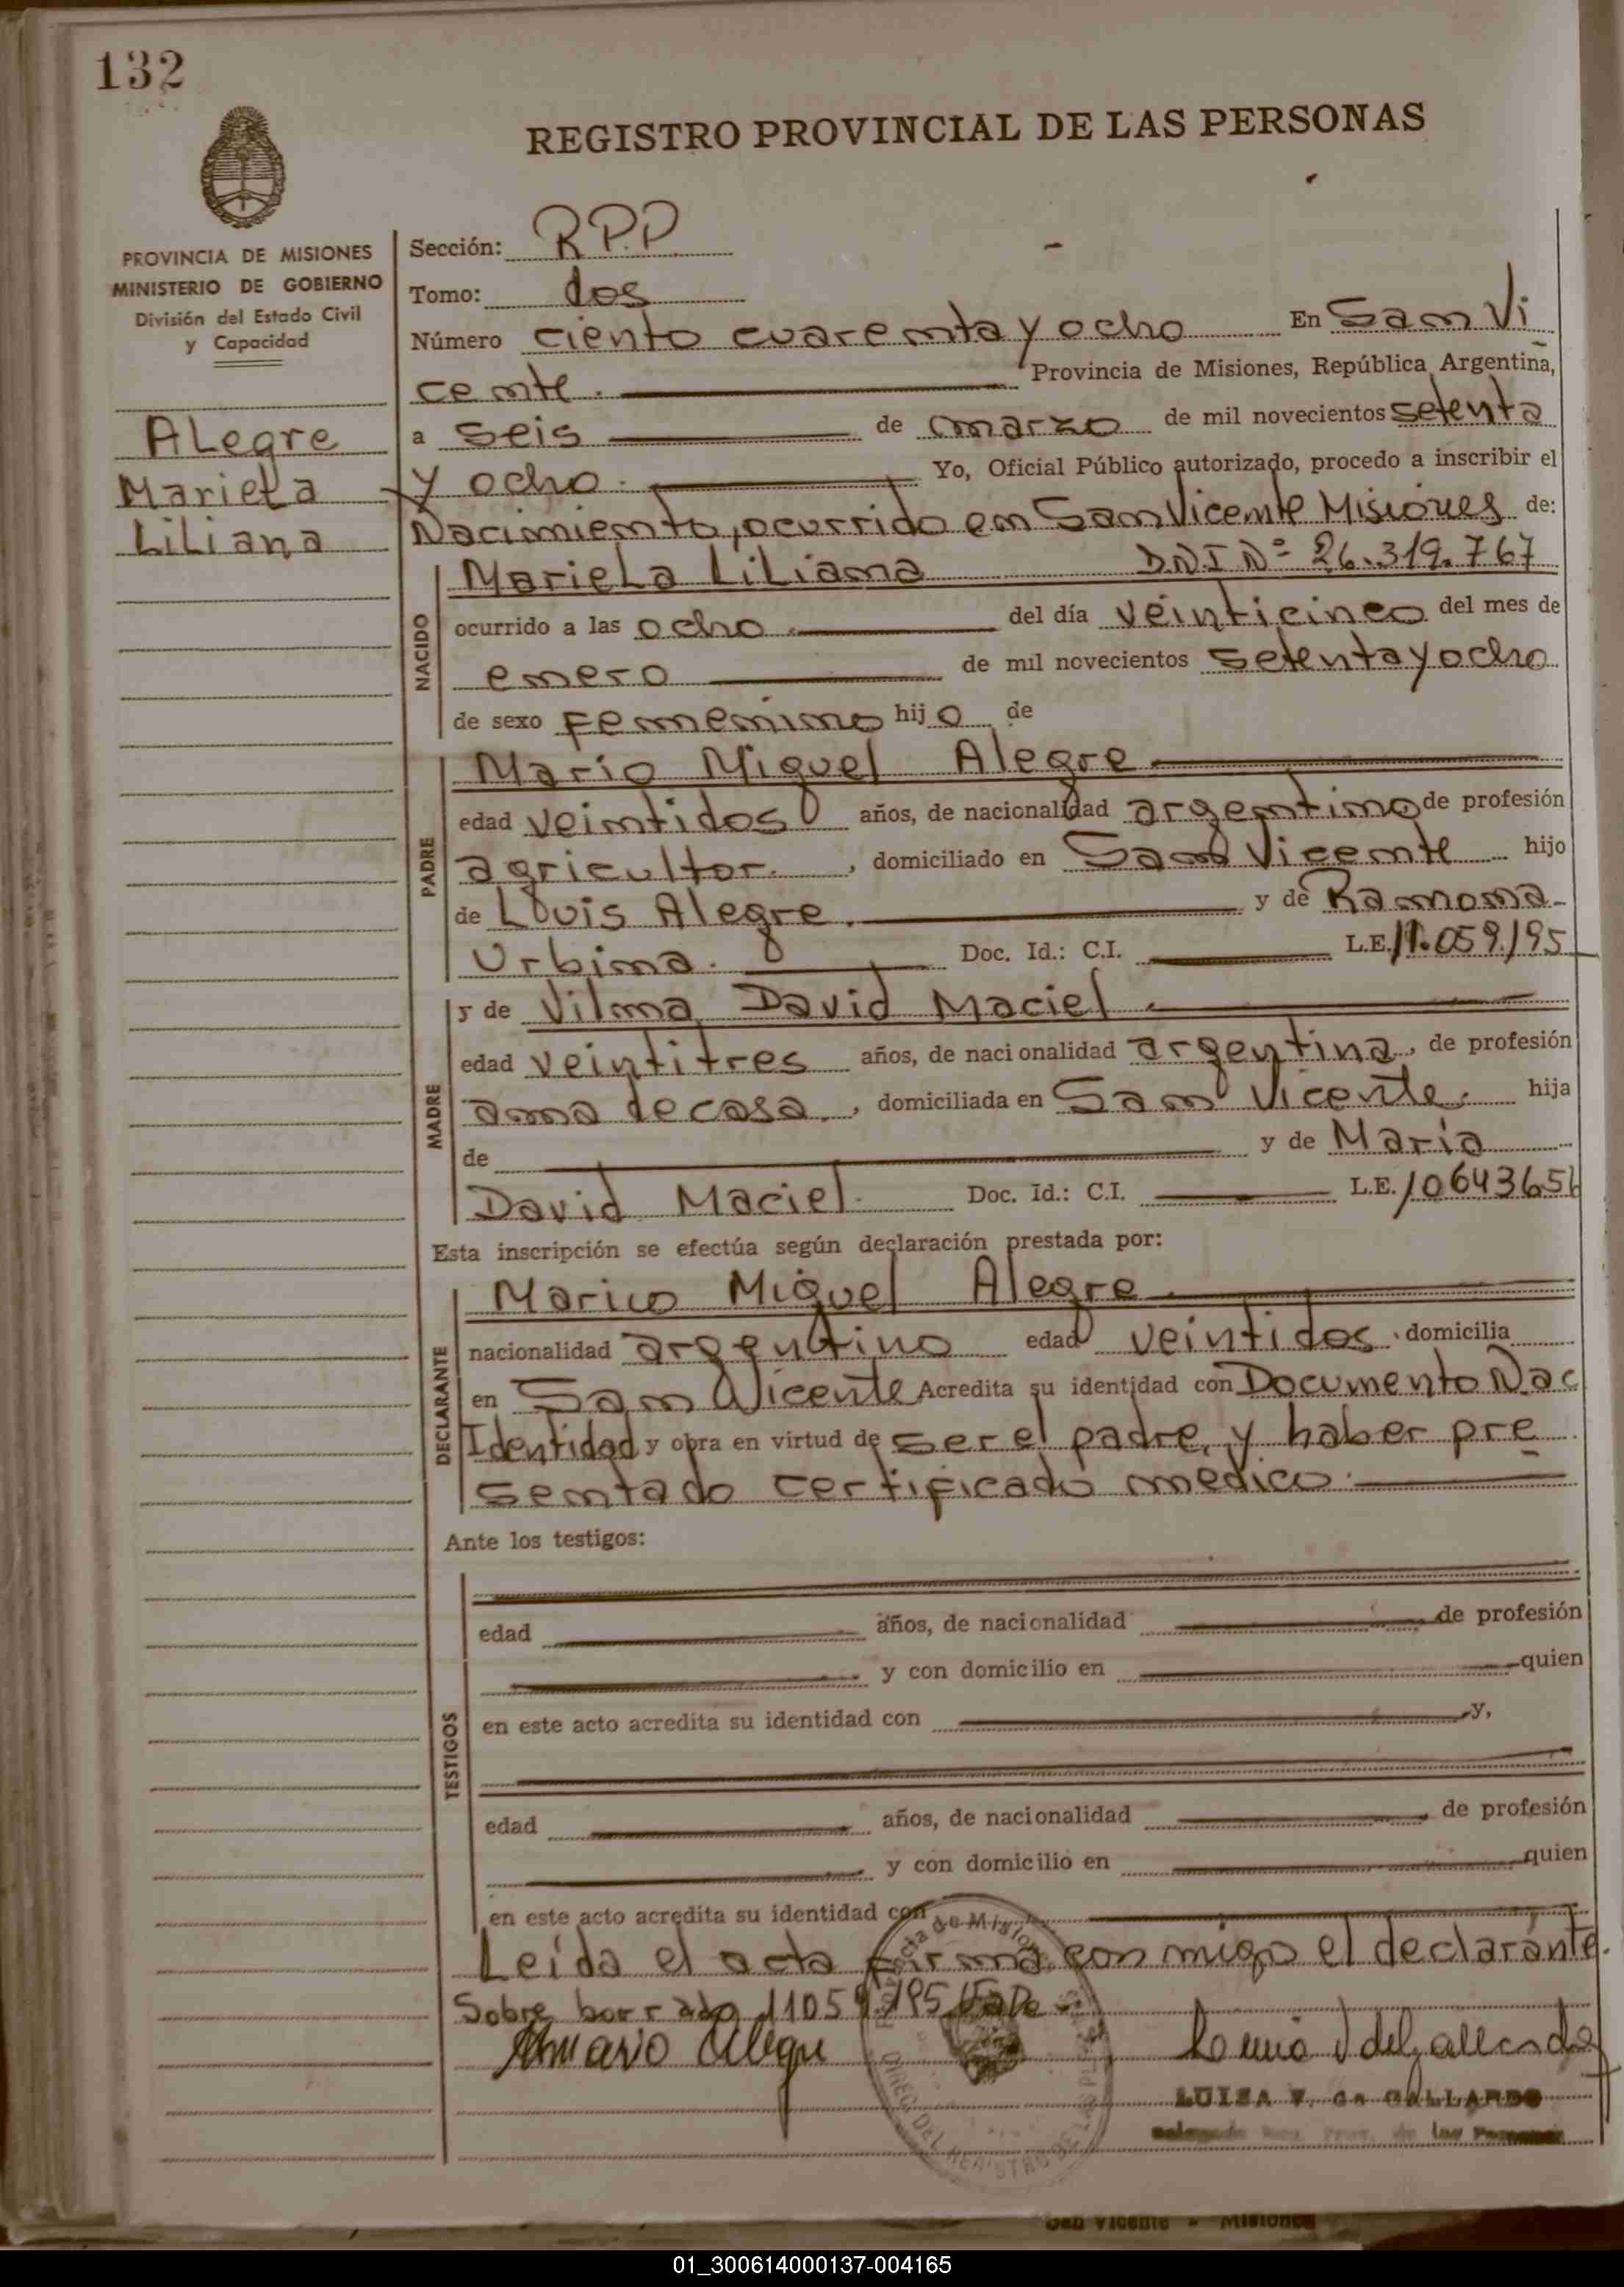 132
REGISTRO PROVINCIAL DE LAS PERSONAS
PROVINCIA DE MISIONES
MINISTERIO DE GOBIERNO
División del Estado Civil
y Capacidad
Alegre
Mariela
Liliana
Sección: R.P.P
Tomo: dos
Número ciento cuarenta y ocho En San Vi
cente. Provincia de Misiones, República Argentina,
a seis de marzo de mil novecientos setenta
y ocho. Yo, Oficial Público autorizado, procedo a inscribir el
Nacimiento, ocurrido en San Vicente Misiones de:
NACIDO
Mariela Liliana D.N.I Nº 26.319.767
ocurrido a las ocho. del día veinticinco del mes de
enero de mil novecientos setenta y ocho
de sexo femenino hijo de
PADRE
Mario Miguel Alegre
edad veintidos años, de nacionalidad argentino de profesión
agricultor. , domiciliado en San Vicente hijo
de Louis Alegre. y de Ramona
Urbina. Doc. Id.: C.I. L.E. 11.059.195
MADRE
y de Vilma David Maciel
edad veintitres años, de nacionalidad argentina, de profesión
ama de casa. , domiciliada en San Vicente. hija
de y de María
David Maciel. Doc. Id.: C.I. L.E. 10643656
Esta inscripción se efectúa según declaración prestada por:
DECLARANTE
Mario Miguel Alegre
nacionalidad argentino edad veintidos, domicilia
en San Vicente Acredita su identidad con Documento Nac
Identidad y obra en virtud de ser el padre, y haber pre
sentado certificado medico.
Ante los testigos:
TESTIGOS
edad años, de nacionalidad de profesión
y con domicilio en quien
en este acto acredita su identidad con y,
edad años, de nacionalidad de profesión
y con domicilio en quien
en este acto acredita su identidad con
Leída el acta firma con migo el declarante.
Sobre borrado 11059195 Vale
Mario Alegre
LUISA V. de GALLARDO
San Vicente - Misiones
01_300614000137-004165